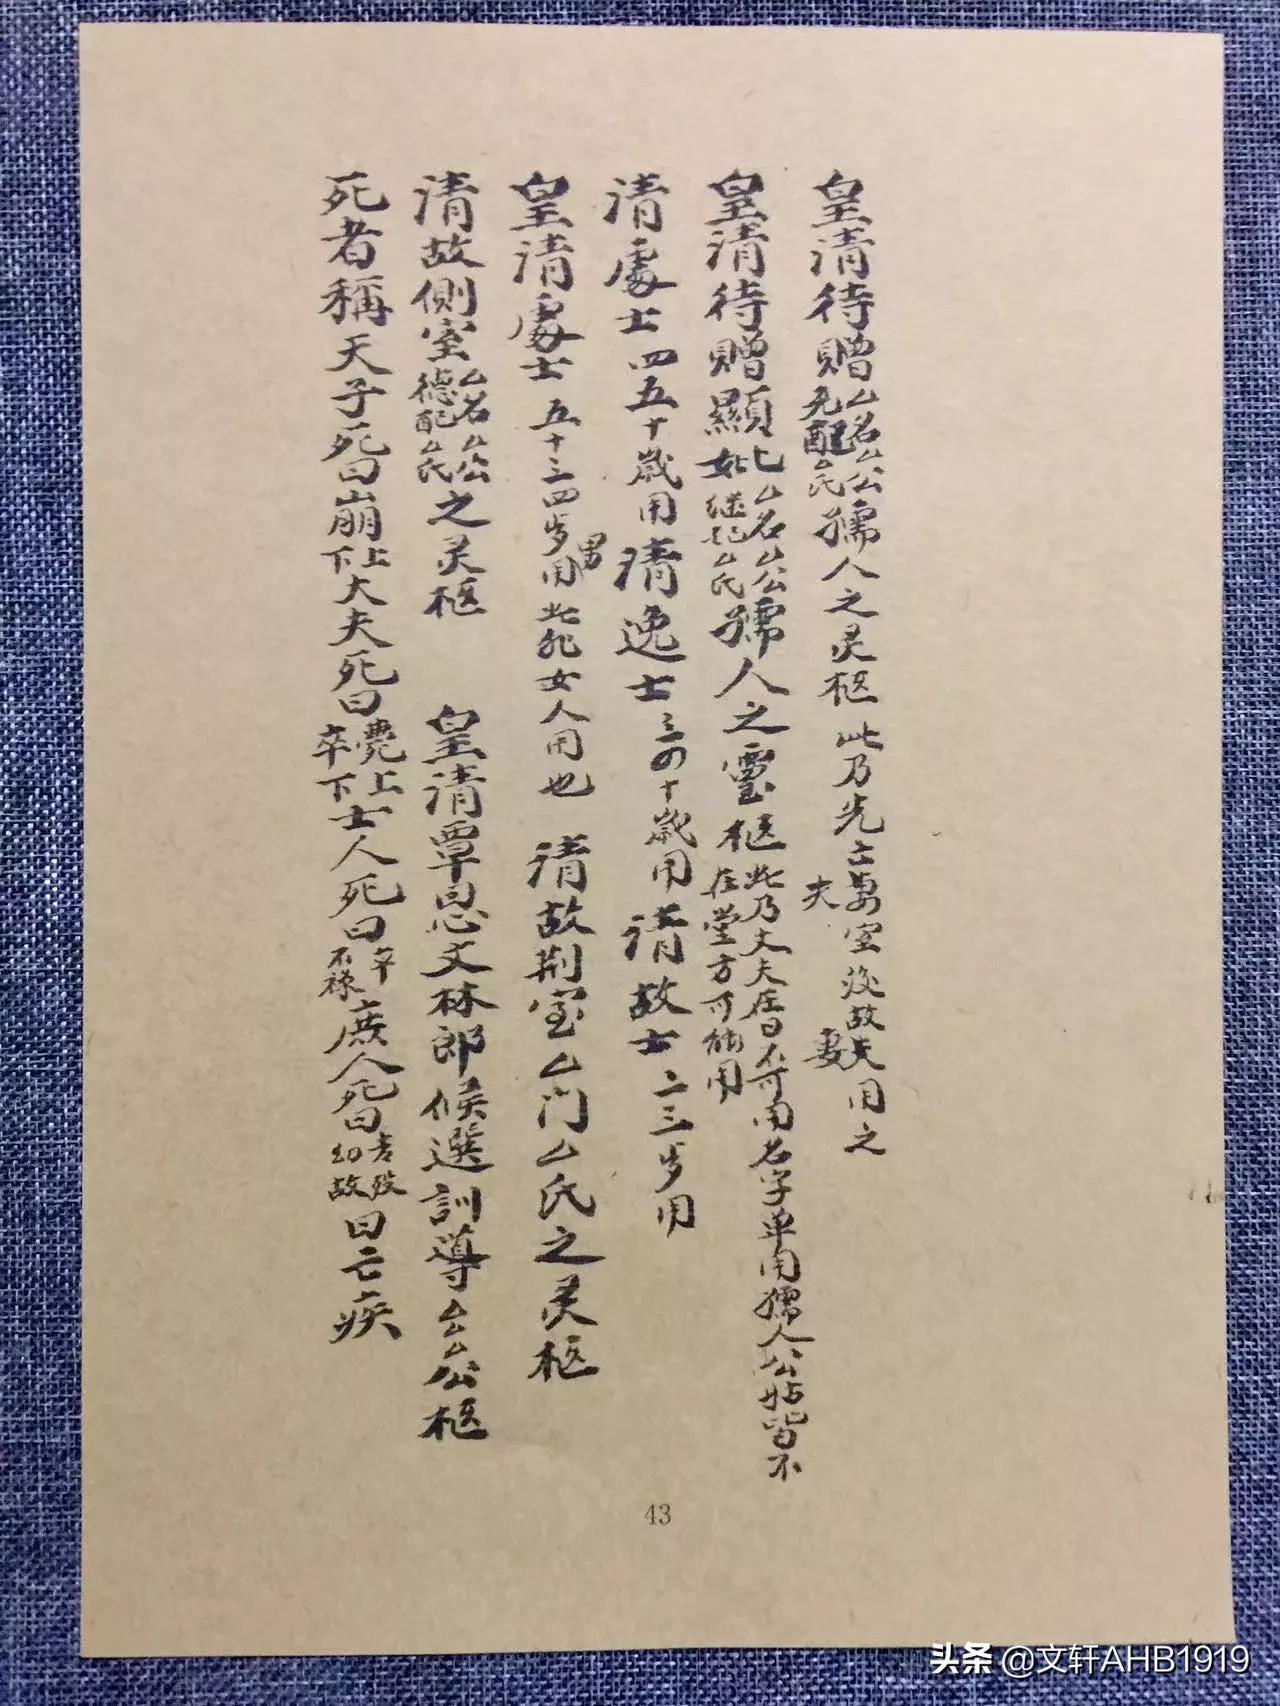 皇清待贈厶名厶公元配厶氏孺人之灵柩 此乃先亡妻室後故夫用之 夫 妻
皇清待贈顯妣厶名厶公继配厶氏孺人之靈柩 此乃丈夫在日不可用名字单用孺人公姑皆不在堂方可能用
清處士四五十歲用 清逸士三四十歲用 清故士二三岁用
皇清處士五十三四岁用男 此死女人用也 清故荆室厶门厶氏之灵柩
清故側室厶名厶公德配厶氏之灵柩 皇清覃恩文林郎候選訓導厶厶公柩
死者稱天子死曰崩上下大夫死曰薨上卒下士人死曰卒不禄庶人死曰老殁幼故曰亡疾
43
头条 @文轩AHB1919